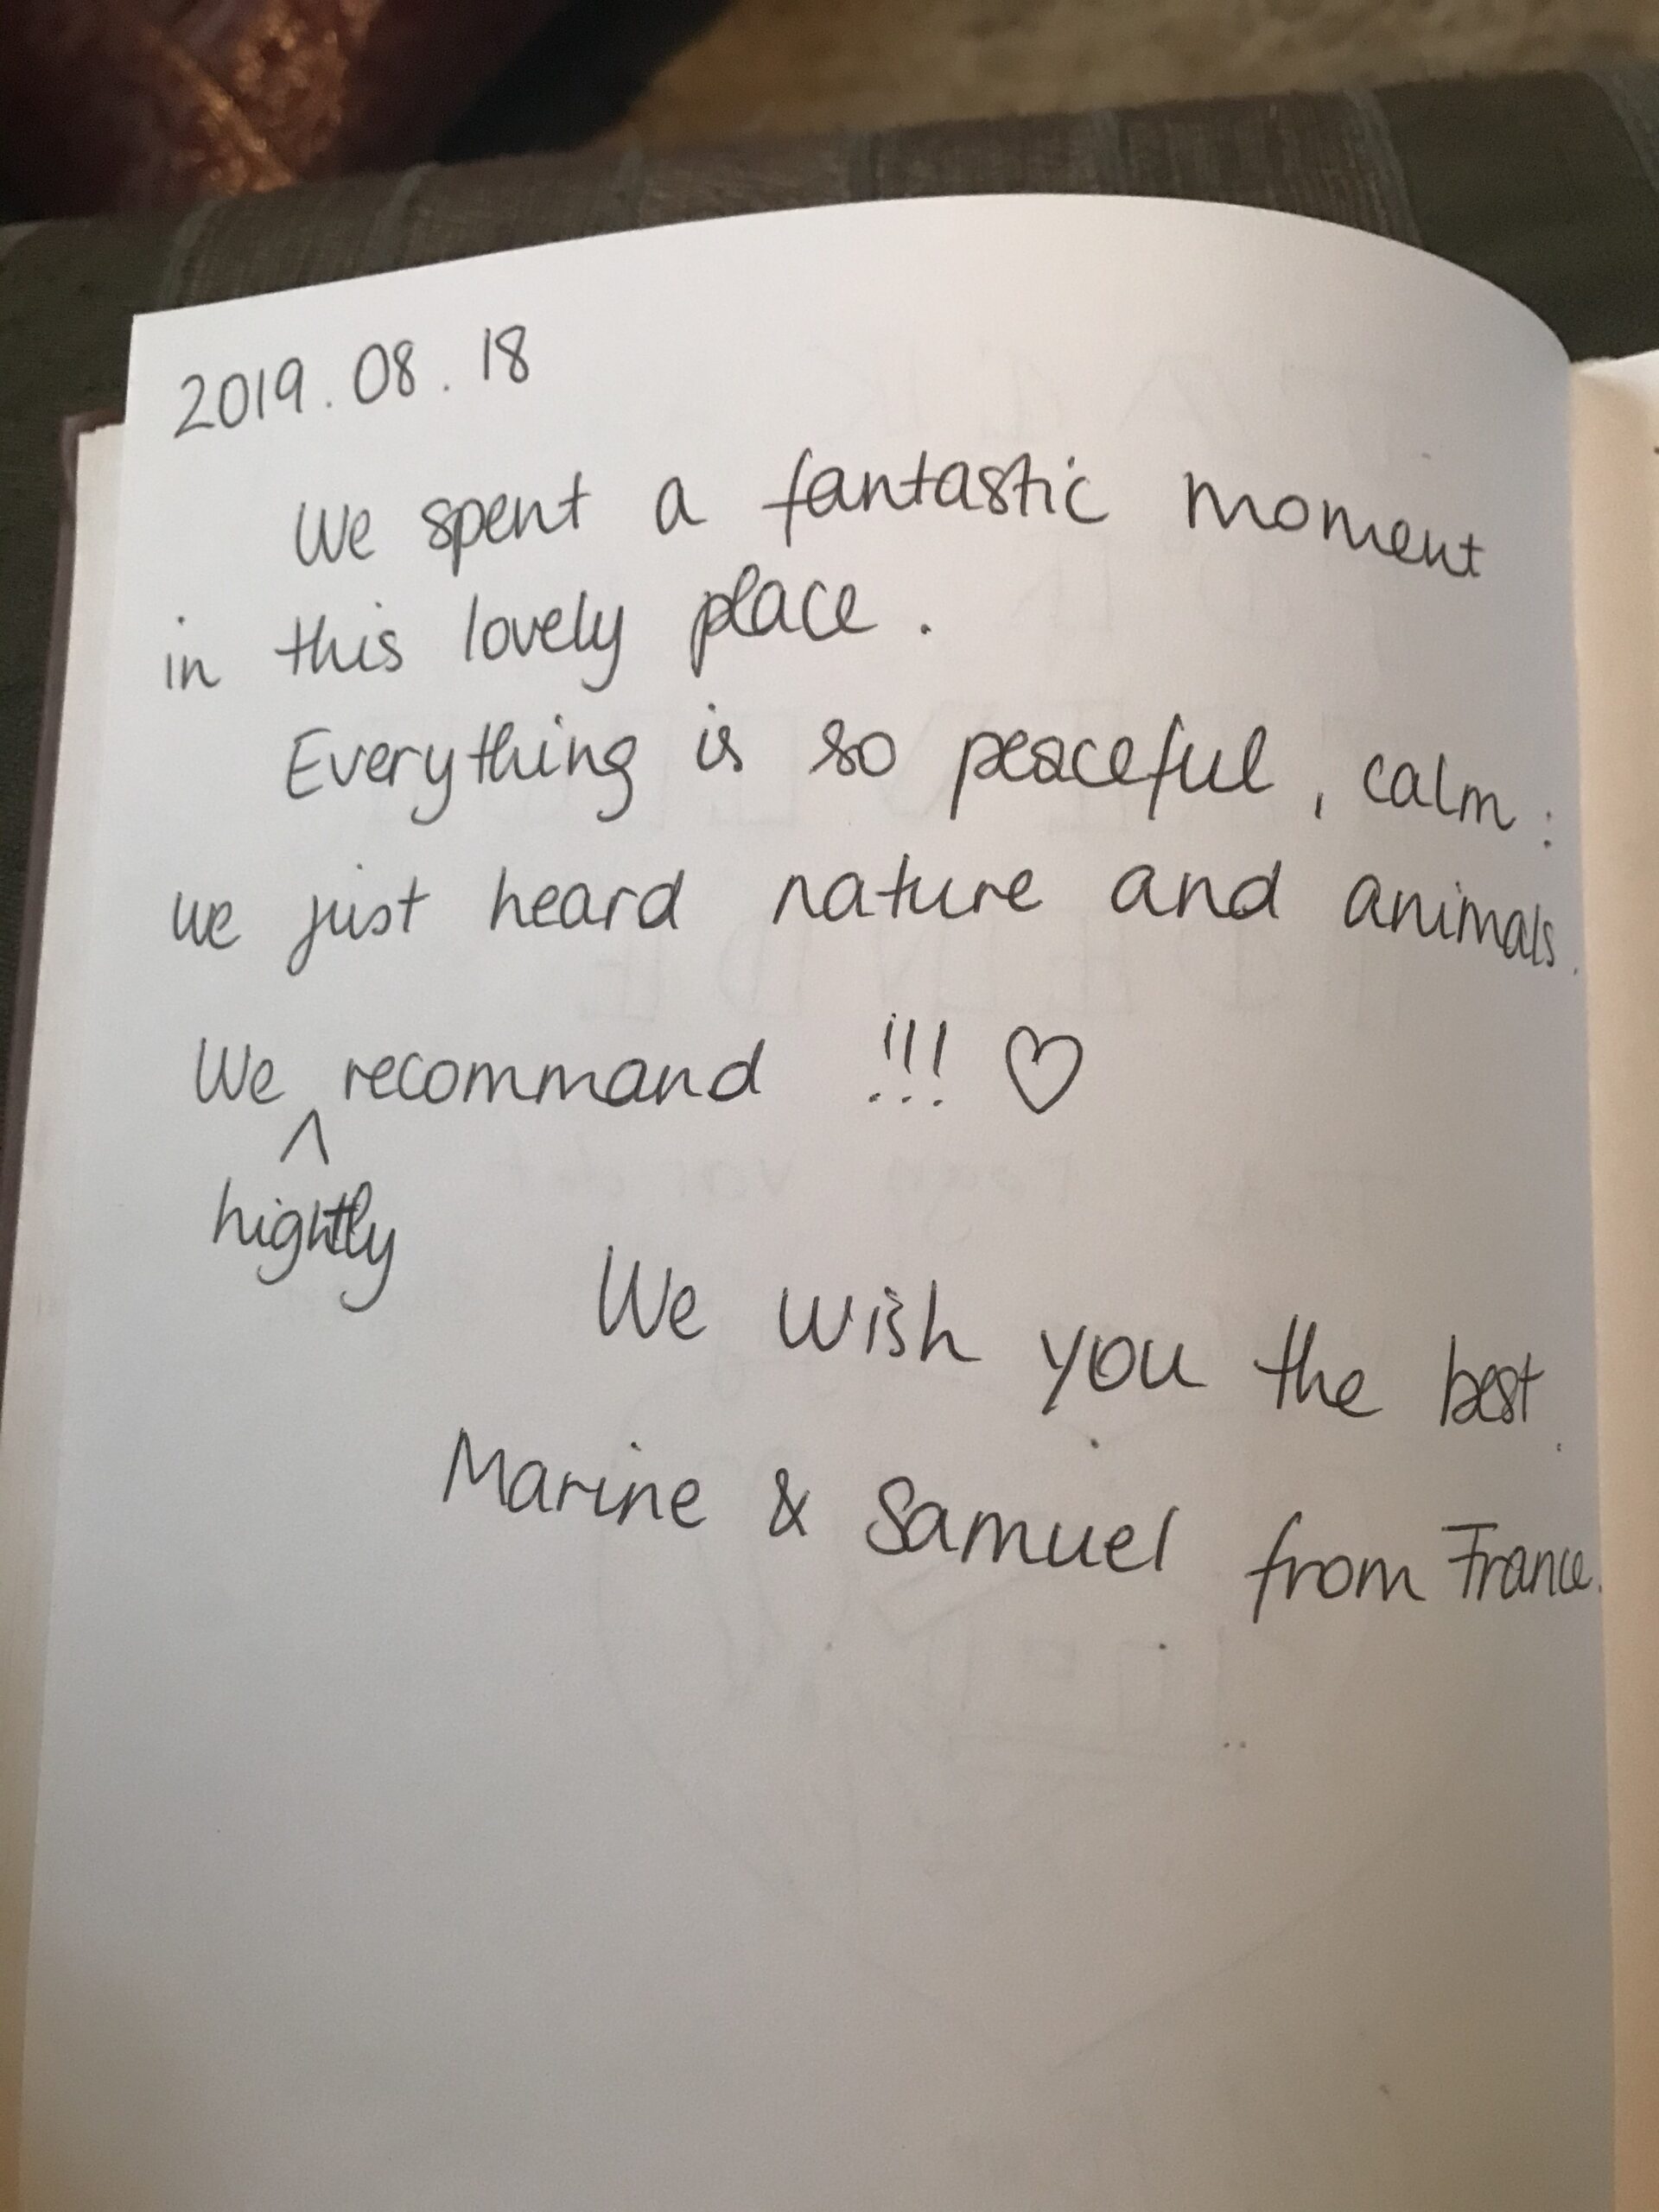 2019.08.18
We spent a fantastic moment
in this lovely place.
Everything is so peaceful, calm:
we just heard nature and animals.
We recommand !!! ♡
^
hightly
We wish you the best.
Marine & Samuel from France.